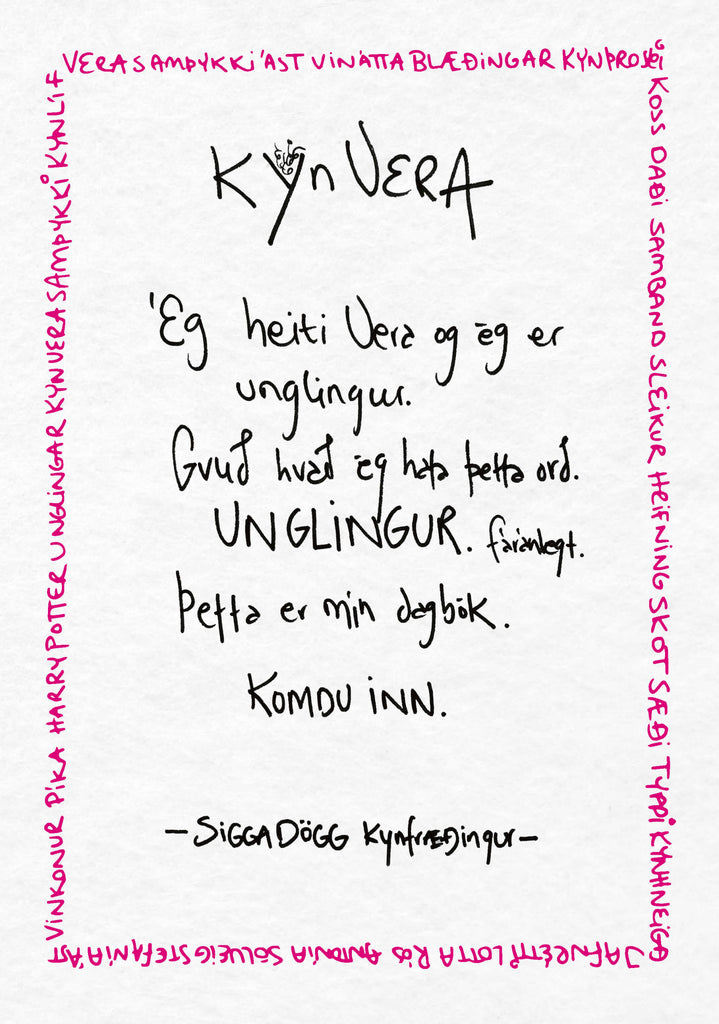 VERA SAMÞYKKI ÁST VINÁTTA BLÆÐINGAR KYNÞROSKI
KOSS DAÐI SAMBAND SLEIKUR HEIFNING SKOT SÆÐI TYPPI KYNHNEIGÐ
JAFNRÉTTI LOTTA RÓS ANTONÍA SÓLVEIG STEFANÍA ÁST
VINKONUR PÍKA HARRY POTTER UNGLINGAR KYNVERA SAMÞYKKI KYNLÍF
KYN VERA
Ég heiti Vera og ég er
unglingur.
Gvuð hvað ég hata þetta orð.
UNGLINGUR. fáránlegt.
Þetta er mín dagbók.
KOMDU INN.
– SIGGA DÖGG kynfræðingur –